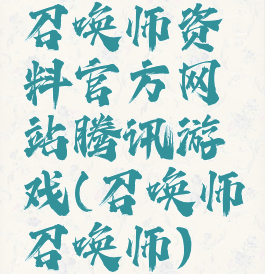 召唤师资
料官方网
站腾讯游
戏(召唤师
召唤师)